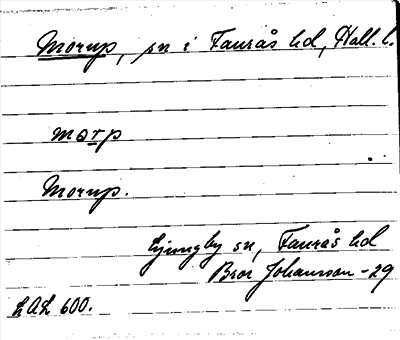 Morup, sn i Faurås hd, Hall. l.
morp
Morup.
Ljungby sn, Faurås hd
Bror Johansson -29
LAL 600.